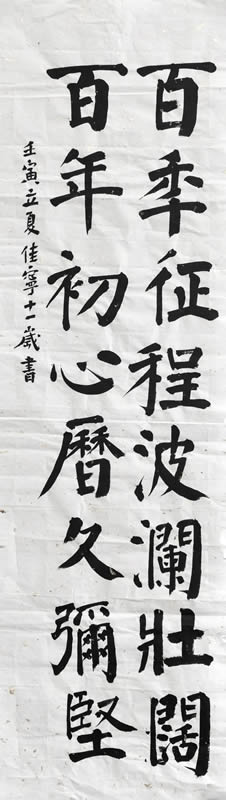 百秊征程波瀾壯闊
百年初心曆久彌堅
壬寅立夏佳寧十一歲書